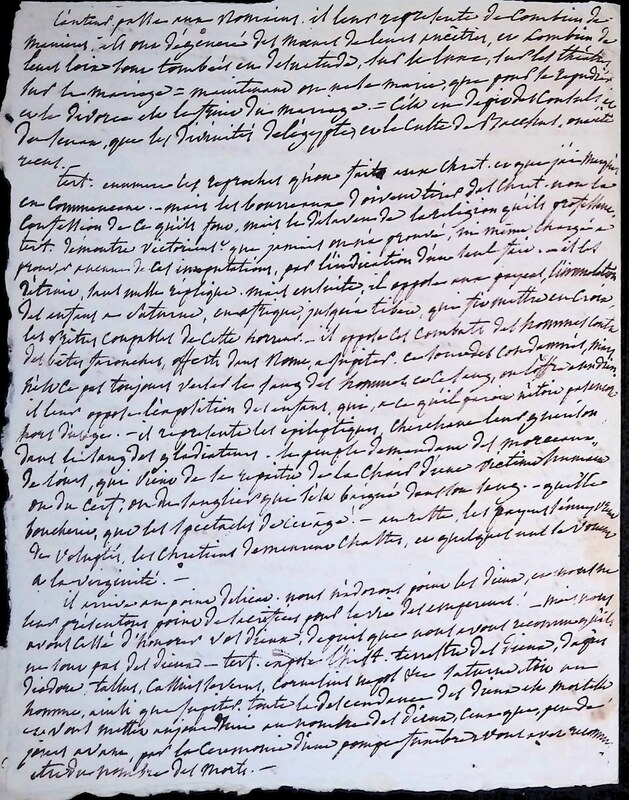 L'auteur, passe aux Romains. il leur represente de Combien de
manieres, ils ont dégénéré des mœurs de leurs ancêtres, et combien de
leurs loix sont tombées en desuetude, sur le luxe, sur les théatres,
sur le mariage = maintenant on ne se marie, que pour le repudier
et le divorce est le fruit du mariage. = C'est en depit des Consuls, et
du senat, que les divinités de l'egypte, et le Culte de Bacchus, ont été
recus.
Tert. enumere les reproches qu'on faits aux Chret. et que j'ai
en Commencant. – mais les bourreaux doivent tirer des Chret. non la
Confession de ce qu'ils font, mais le désaveu de la religion qu'ils professent.
tert. démontre victorieust. que jamais on n'a prouvé, ni même cherché a
prouver aucune de ces imputations, par l'indication d'un seul fait. – il les
détruit, sans nulle réplique. mais ensuite, il oppose aux payens, l'immolation
des enfans a Saturne, en afrique, jusqu'a tibere, qui fit mettre en Croix,
les prêtres coupables de cette horreur. – il oppose les combats des hommes contre
des bêtes farouches, offerts dans Rome, a Jupiter. ce sont des condamnés, mais
n'est ce pas toujours verser le sang des hommes, et ce sang, on l'offre a un dieu
il leur oppose l'exposition des enfans, que, a ce qu'il paroit n'étoit pas encor
hors d'usage. – il represente les epileptiques, cherchant leur guérison
dans le sang des gladiateurs. – le peuple demandant des morceaux,
de l'ours, qui vient de se repaitre de la Chair d'une victime humaine
ou du cerf, ou du sanglier que s'est baigné dans son sang. – quelle
boucherie, que les spectacles de ce tems! – au reste, les payens
de voluptés, les Chrétiens demeurent Chastes, et quelques uns se vouent
a la virginité. –
il arrive au point délicat. nous n'adorons point les dieux, et nous ne
leur présentons point de sacrifices pour la vie des empereurs! – mais nous
avons cessé d'honorer vos dieux, depuis que nous avons reconnu qu'ils
ne sont pas des dieux – tert. expose l'hist. terrestre des dieux, d'après
diodore, tallus, Cassius severus, Cornelius nepos &c saturne, étoit un
homme, ainsi que Jupiter, toute la descendance des dieux est mortelle
et vous mettez aujourd'hui au nombre des dieux, ceux que, peu de
jours avant, par la Ceremonie d'une pompe funebre vous avez reconnu
etre du nombre des morts. –